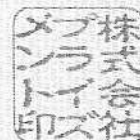 株式会社
ブライズ
メント印